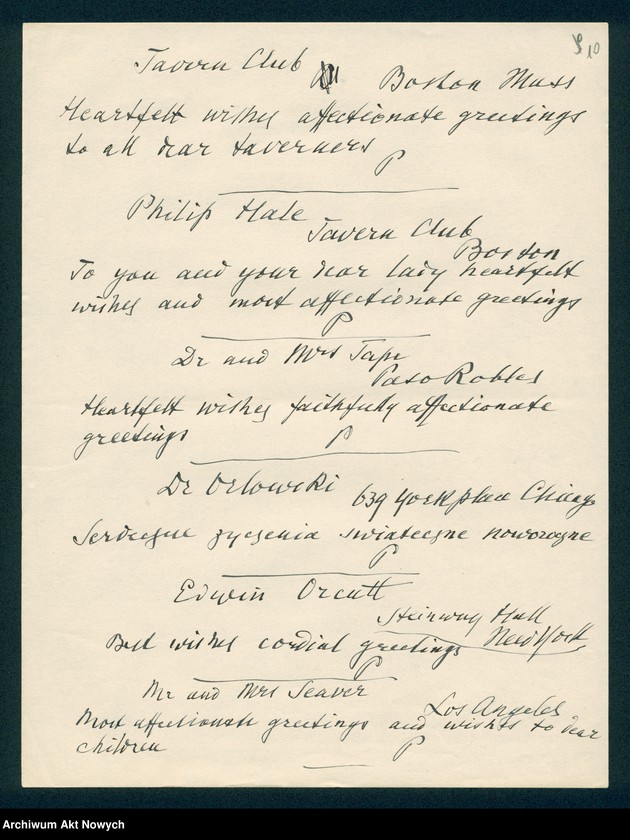 10
Tavern Club
Boston Mass
Heartfelt wishes affectionate greetings
to all dear taverners
P
Philip Hale
Tavern Club
Boston
To you and your dear lady heartfelt
wishes and most affectionate greetings
P
Dr and Mrs Tape
Paso Robles
Heartfelt wishes faithfully affectionate
greetings
P
Dr Orlowski
639 York place Chicago
Serdeczne zyczenia swiateczne noworoczne
P
Edwin Orcutt
Steinway Hall
New York
Best wishes cordial greetings
P
Mr and Mrs Seaver
Los Angeles
Most affectionate greetings and wishes to dear
children
P
Archiwum Akt Nowych